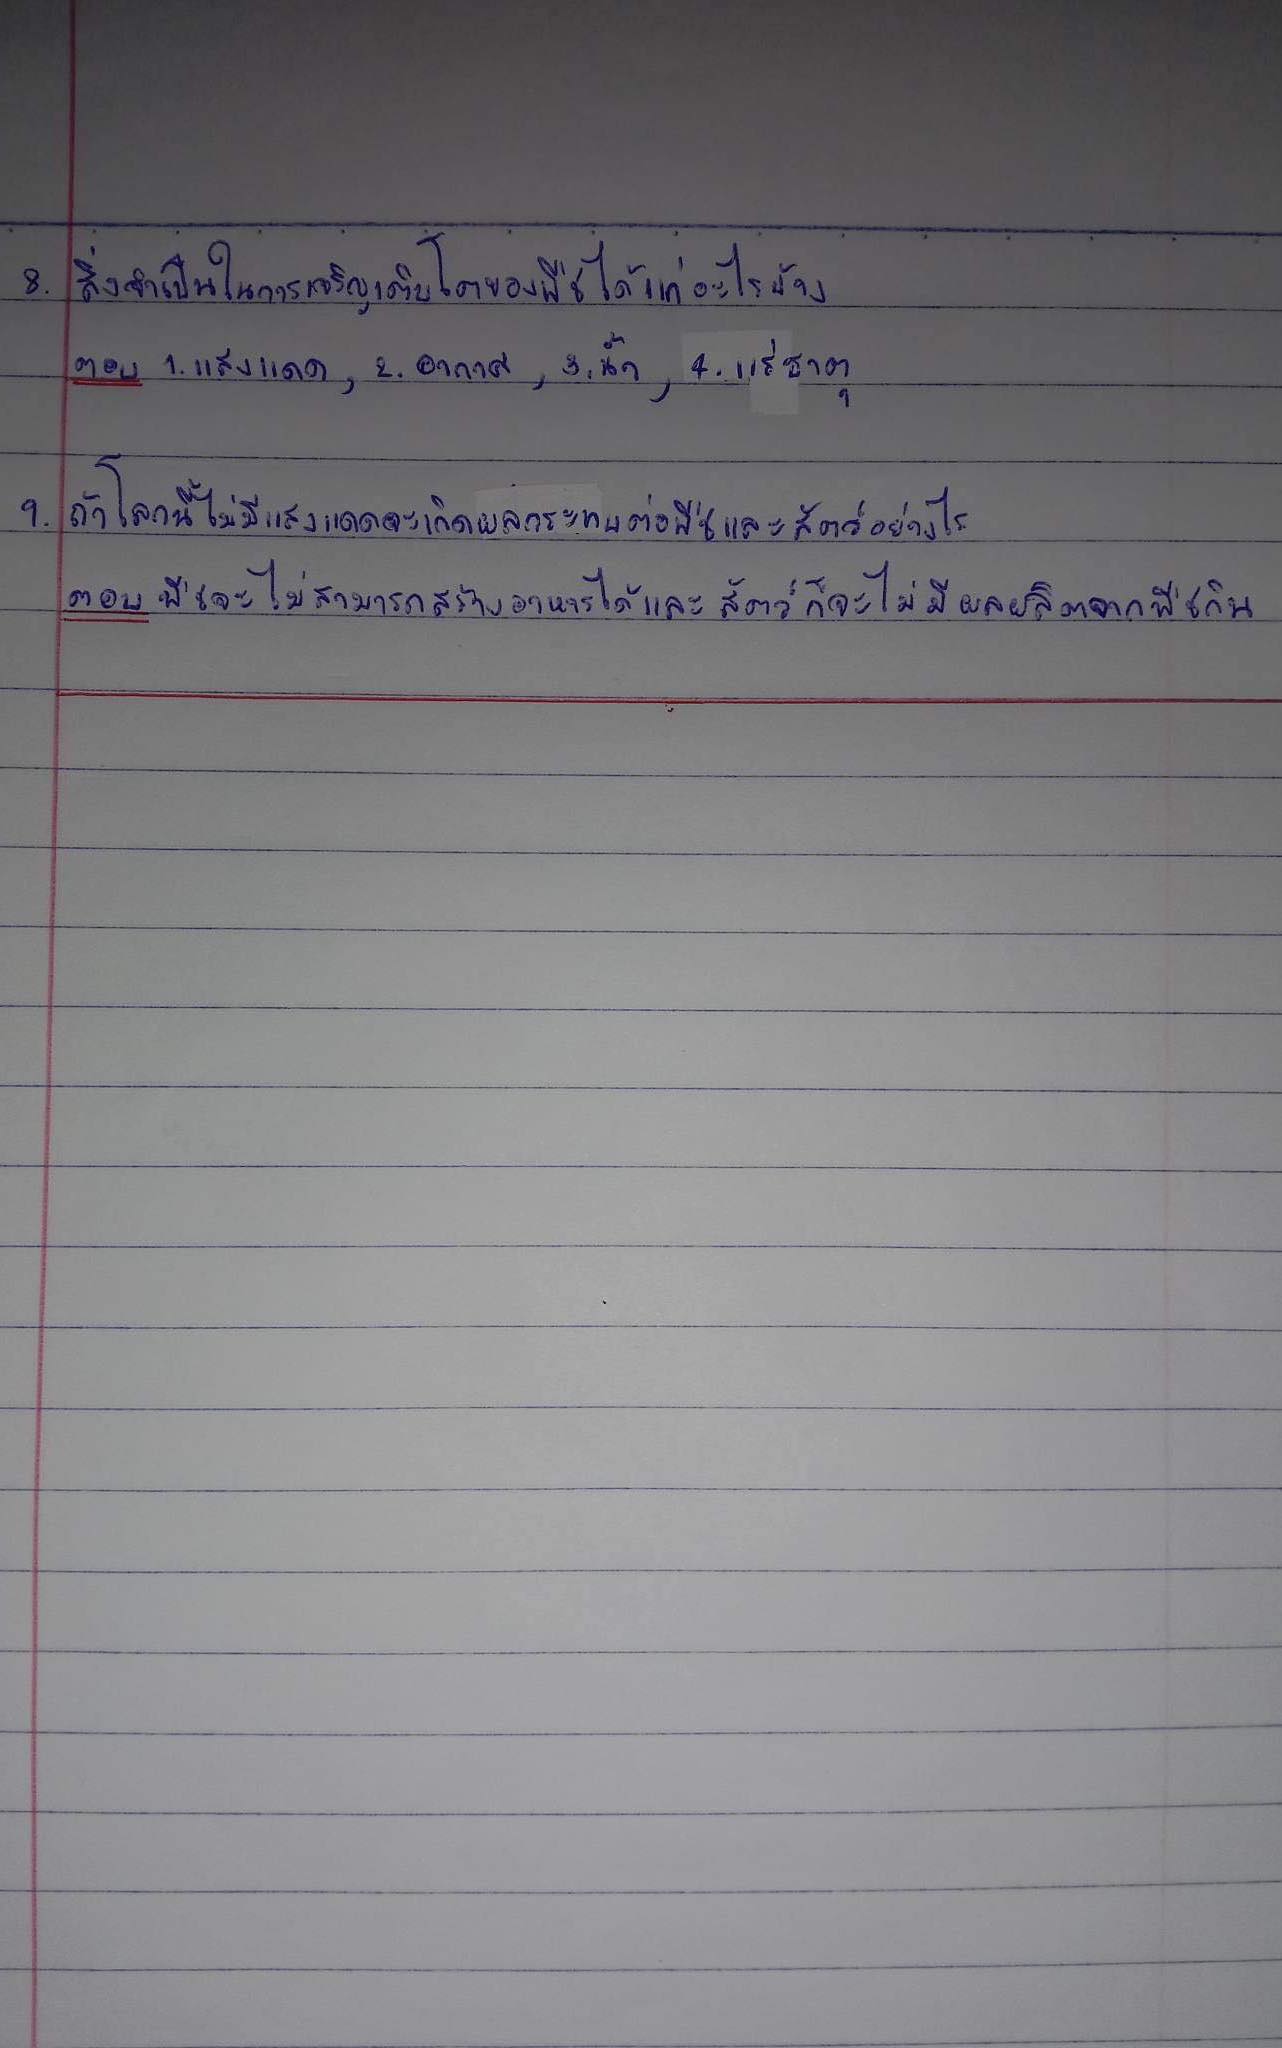 8. สิ่งจำเป็นในการเจริญเติบโตของพืชได้แก่อะไรบ้าง
ตอบ 1. แสงแดด, 2. อากาศ, 3. น้ำ, 4. แร่ธาตุ
9. ถ้าโลกนี้ไม่มีแสงแดดจะเกิดผลกระทบต่อพืชและสัตว์อย่างไร
ตอบ พืชจะไม่สามารถสร้างอาหารได้และสัตว์ก็จะไม่มีผลผลิตจากพืชกิน